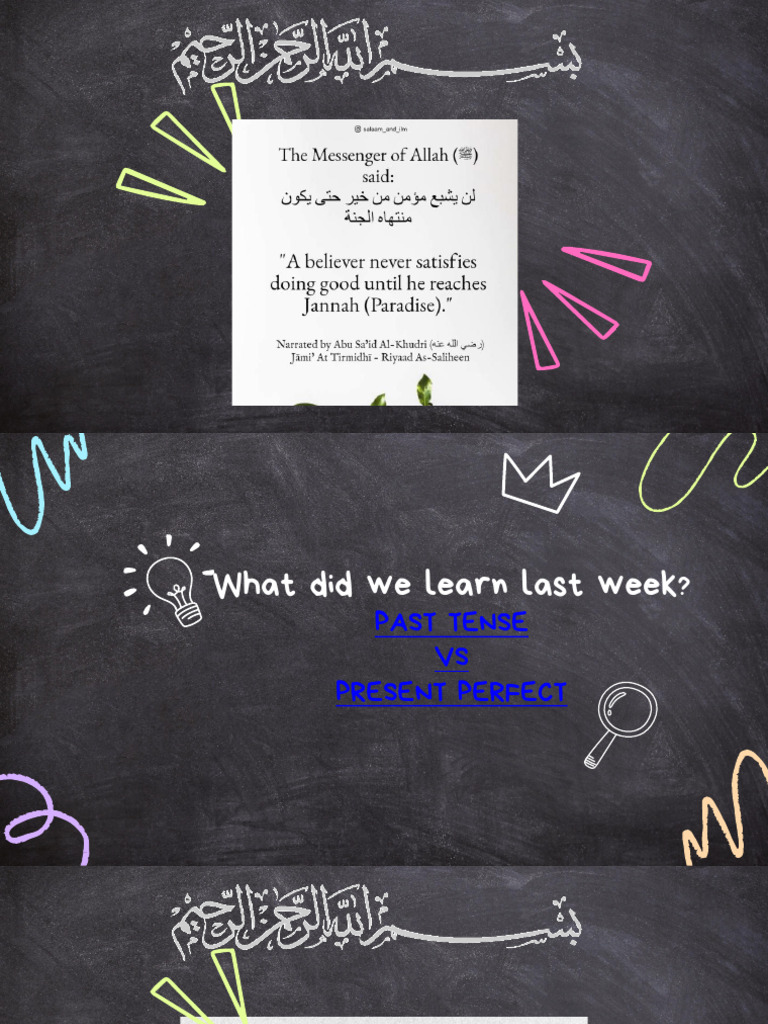 بسم الله الرحمن الرحيم
salaam_and_ilm
The Messenger of Allah (ﷺ)
said:
لن يشبع مؤمن من خير حتى يكون
منتهاه الجنة
"A believer never satisfies
doing good until he reaches
Jannah (Paradise)."
Narrated by Abu Sa'id Al-Khudri (رضي الله عنه)
Jāmi' At Tirmidhī - Riyaad As-Saliheen
What did we learn last week?
PAST TENSE
VS
PRESENT PERFECT
بسم الله الرحمن الرحيم